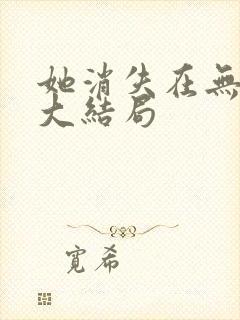 她消失在無
大結局
寬希